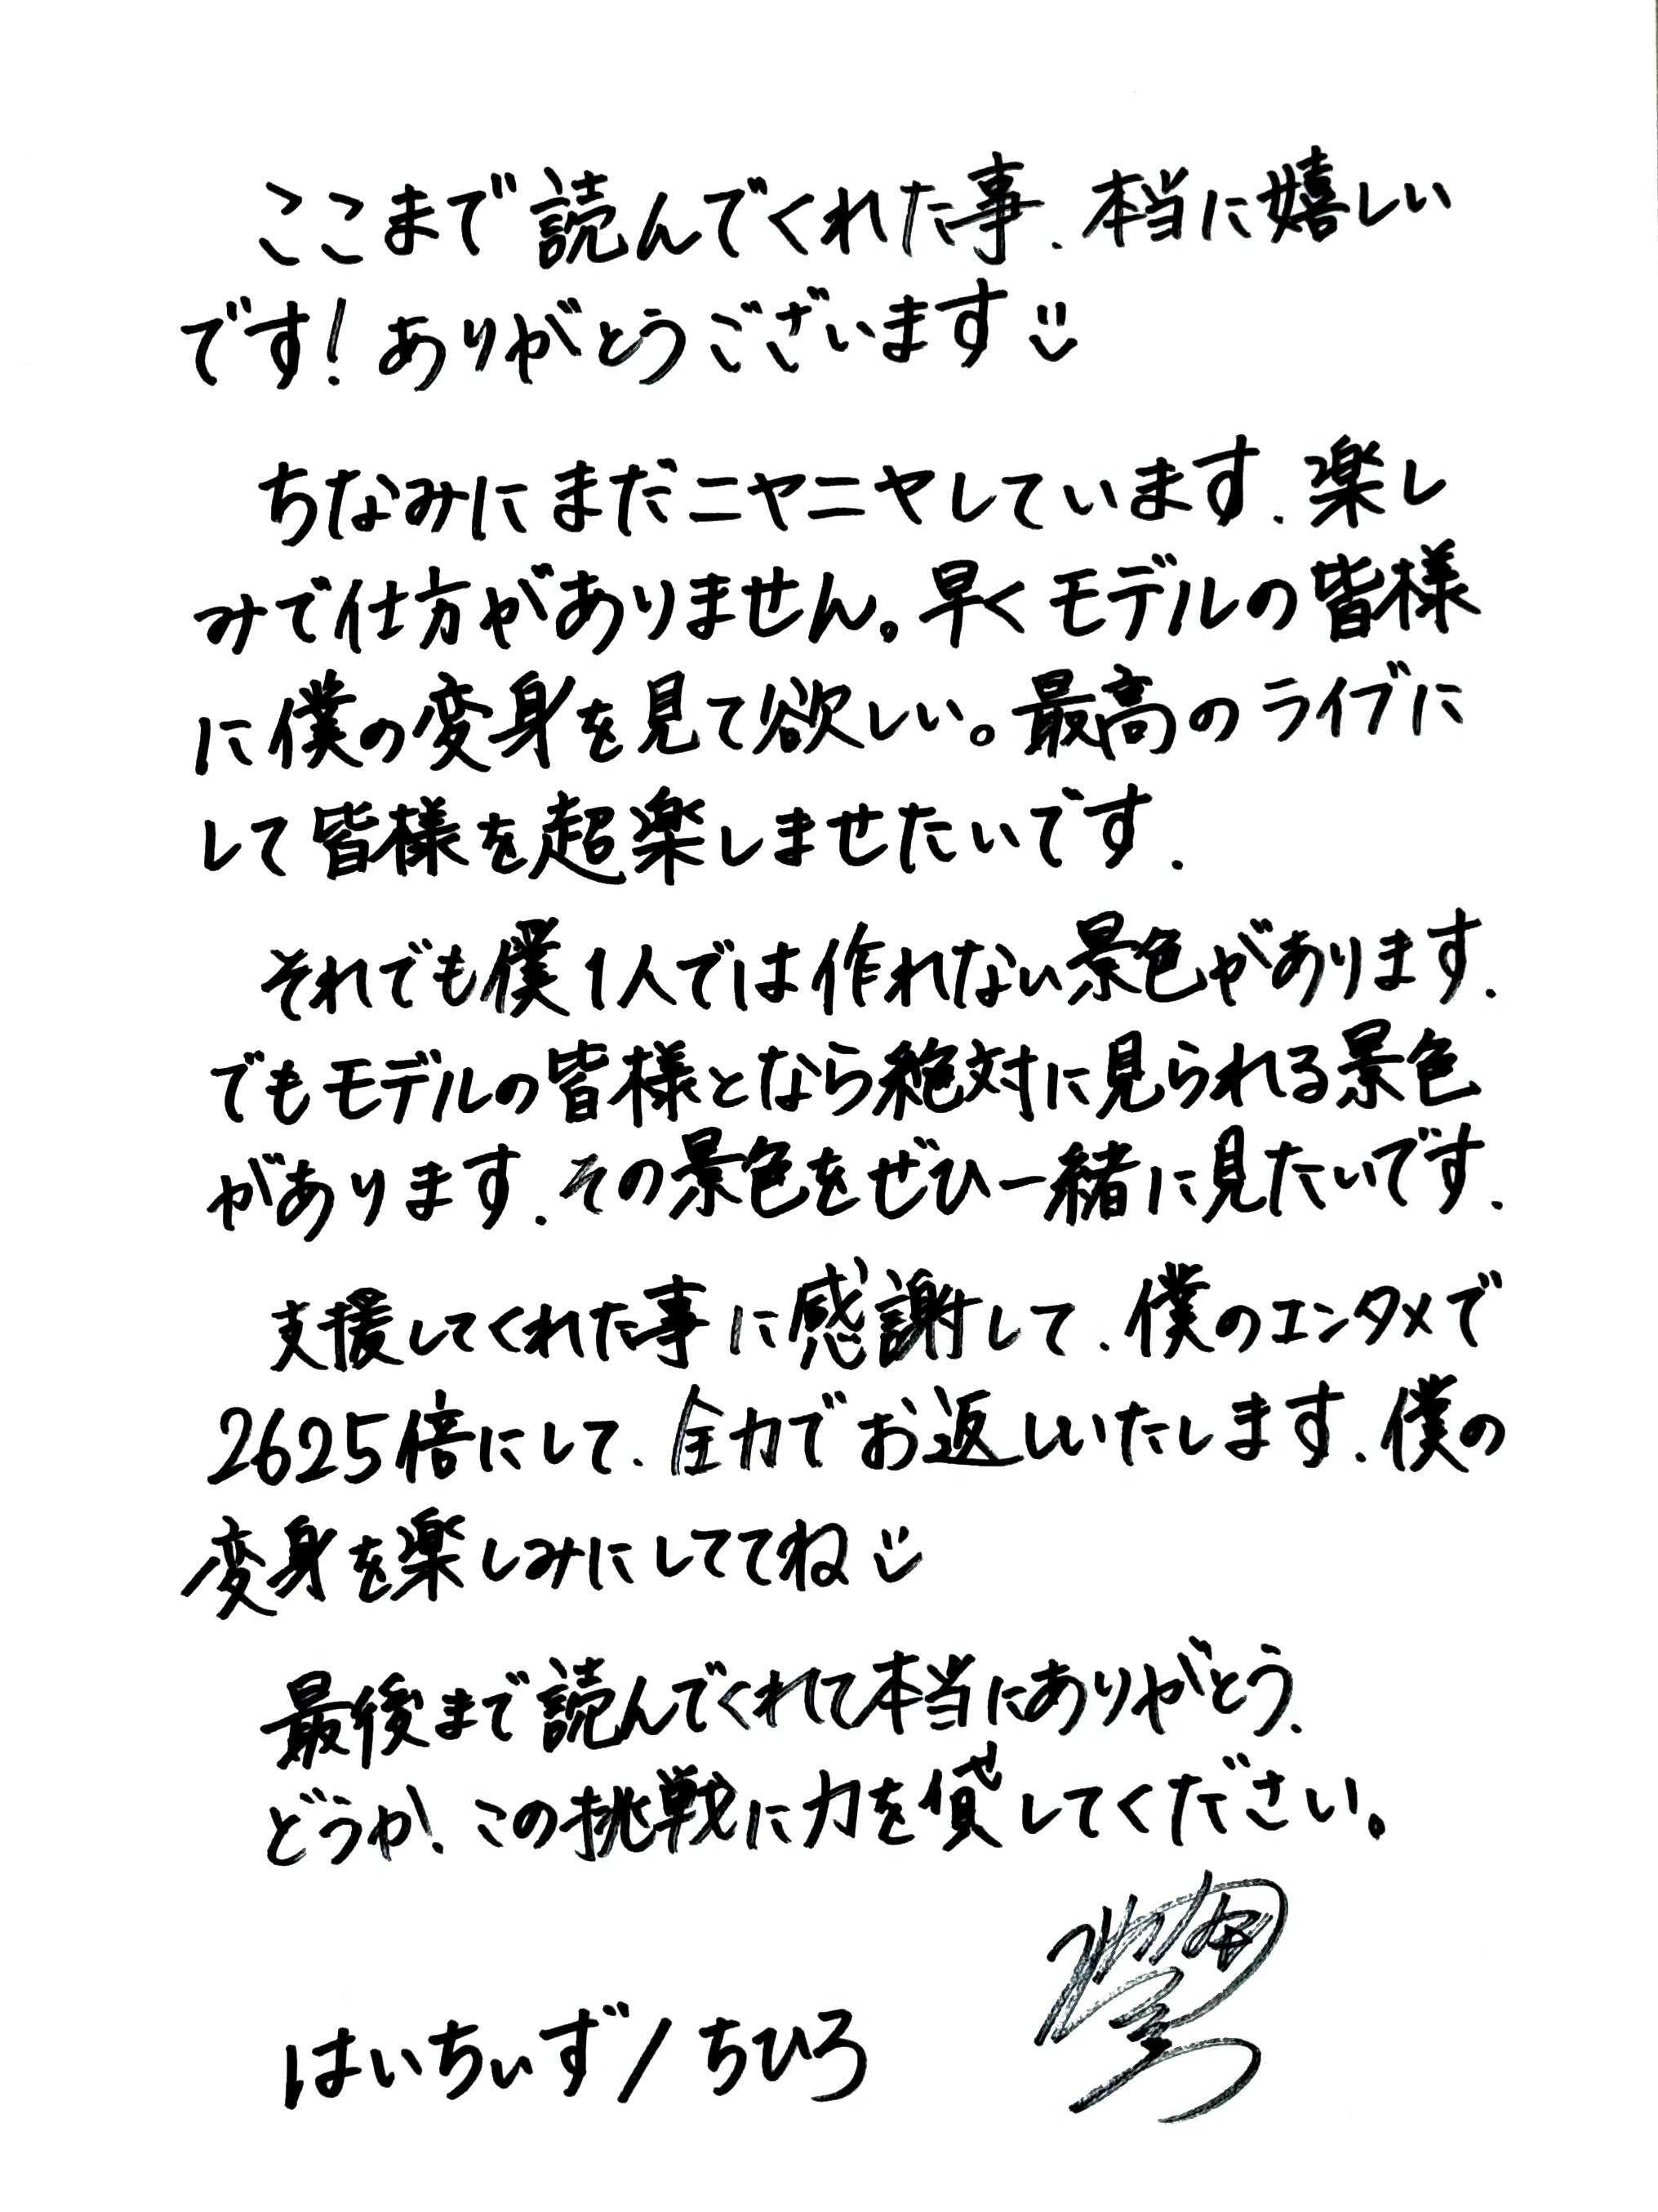 ここまで読んでくれた事、本当に嬉しい
です！ありがとうございます
ちなみにまだニヤニヤしています、楽し
みで仕方がありません。早くモデルの皆様
に僕の変身を見て欲しい。最高のライブに
して皆様を超楽しませたいです、
それでも僕1人では作れない景色があります、
でもモデルの皆様となら絶対に見られる景色
があります、その景色をぜひ一緒に見たいです、
支援してくれた事に感謝して、僕のエンタメで
2625倍にして、全力でお返しいたします、僕の
変身を楽しみにしててね
最後まで読んでくれて本当にありがとう、
どうか、この挑戦に力を貸してください。
はいちぃず/ちひろ